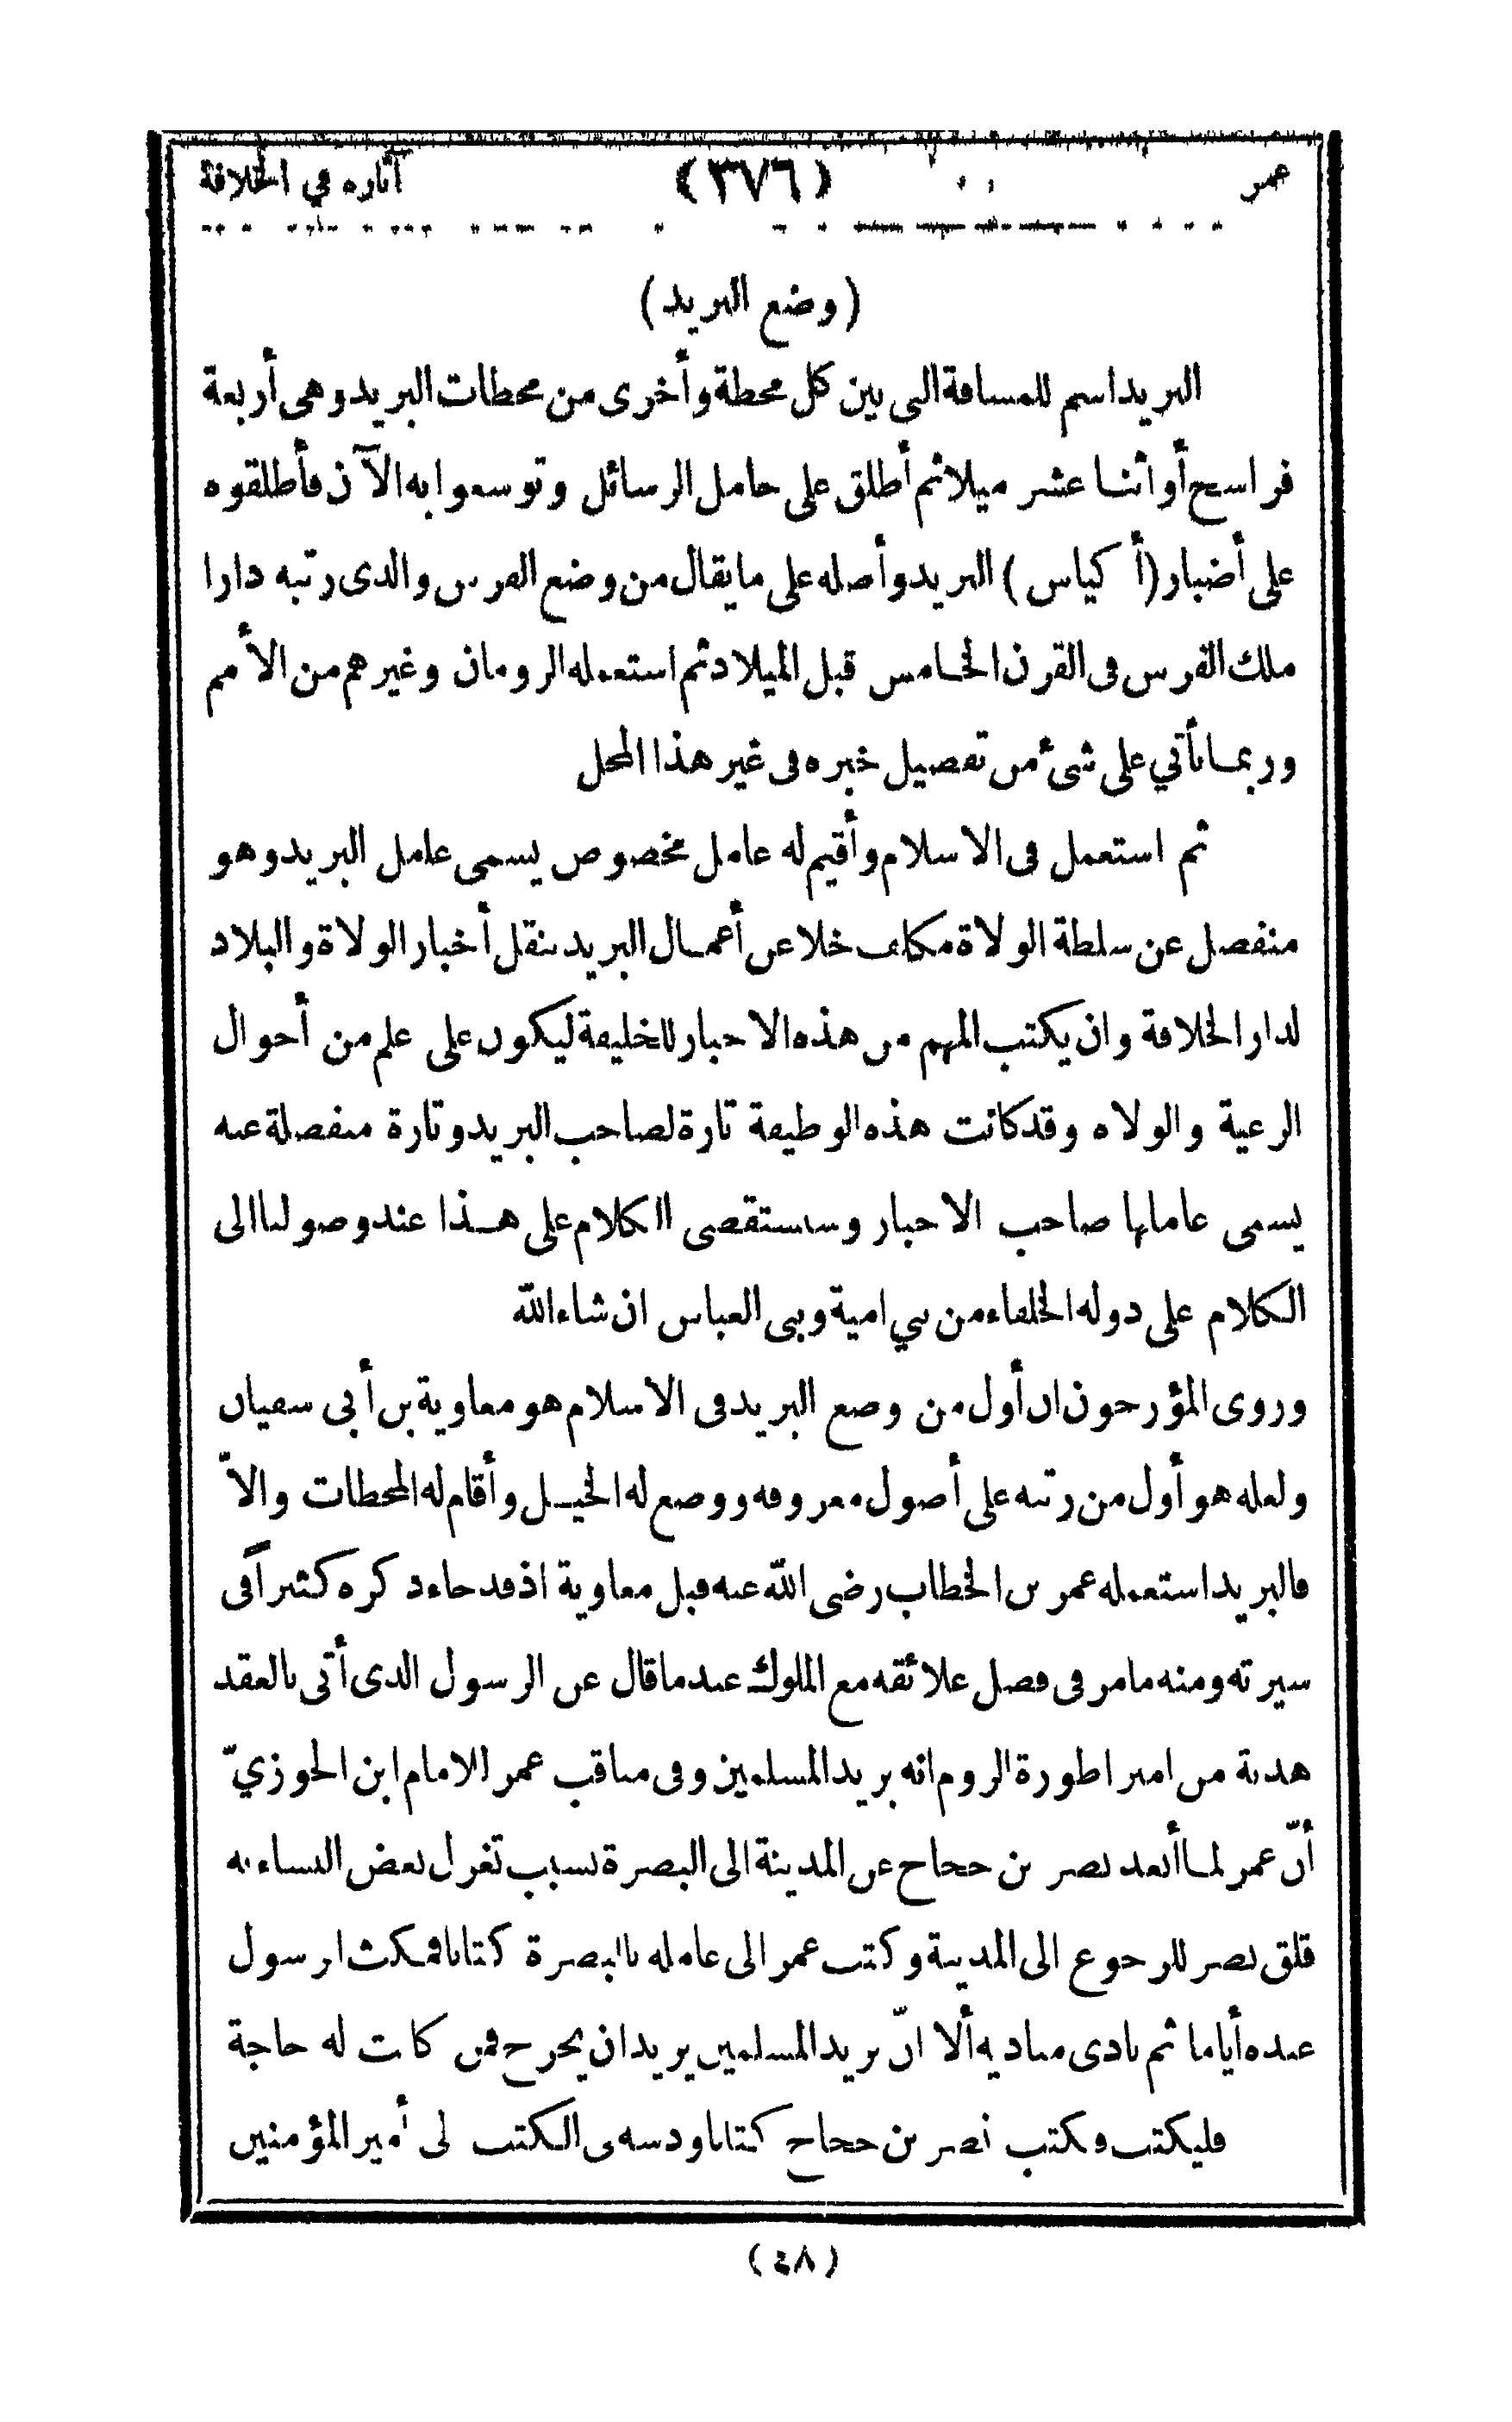 عمر (٣٧٦) آثاره في الخلافة
(وضع البريد)
البريد اسم للمسافة التي بين كل محطة وأخرى من محطات البريد وهي أربعة
فراسخ أو اثنا عشر ميلا ثم أطلق على حامل الرسائل وتوسعوا به الآن فأطلقوه
على أضبار (أكياس) البريد وأصله على ما يقال من وضع الفرس والذي رتبه دارا
ملك الفرس في القرن الخامس قبل الميلاد ثم استعمله الرومان وغيرهم من الأمم
وربما نأتي على شئ من تفصيل خبره في غير هذا المحل
ثم استعمل في الاسلام وأقيم له عامل مخصوص يسمى عامل البريد وهو
منفصل عن سلطة الولاة مكلف خلا عن أعمال البريد بنقل أخبار الولاة والبلاد
لدار الخلافة وان يكتب المهم من هذه الاخبار للخليفة ليكون على علم من أحوال
الرعية والولاه وقد كانت هذه الوظيفة تارة لصاحب البريد وتارة منفصلة عنه
يسمى عاملها صاحب الاخبار وسنستقصى الكلام على هذا عند وصولنا الى
الكلام على دوله الخلفاء من بني امية وبنى العباس ان شاء الله
وروى المؤرخون ان أول من وضع البريد في الاسلام هو معاوية بن أبي سفيان
ولعله هو أول من رتبه على أصول معروفه ووضع له الخيل وأقام له المحطات والاّ
فالبريد استعمله عمر بن الخطاب رضى اللّه عنه قبل معاوية اذ قد جاء ذكره كثيراً في
سيرته ومنه ما مر في فصل علائقه مع الملوك عند ما قال عن الرسول الذي أتى بالعقد
هدية من امبراطورة الروم انه بريد المسلمين وفي مناقب عمر للامام ابن الجوزيّ
أنّ عمر لما أبعد نصر بن حجاج عن المدينة الى البصرة بسبب تغزل بعض النساء به
قلق نصر للرجوع الى المدينة وكتب عمر الى عامله بالبصرة كتابا فمكث الرسول
عنده أياما ثم نادى مناديه ألا انّ بريد المسلمين يريد ان يخرج فمن كانت له حاجة
فليكتب فكتب نصر بن حجاج كتابا ودسه في الكتب الى أمير المؤمنين
(٤٨)